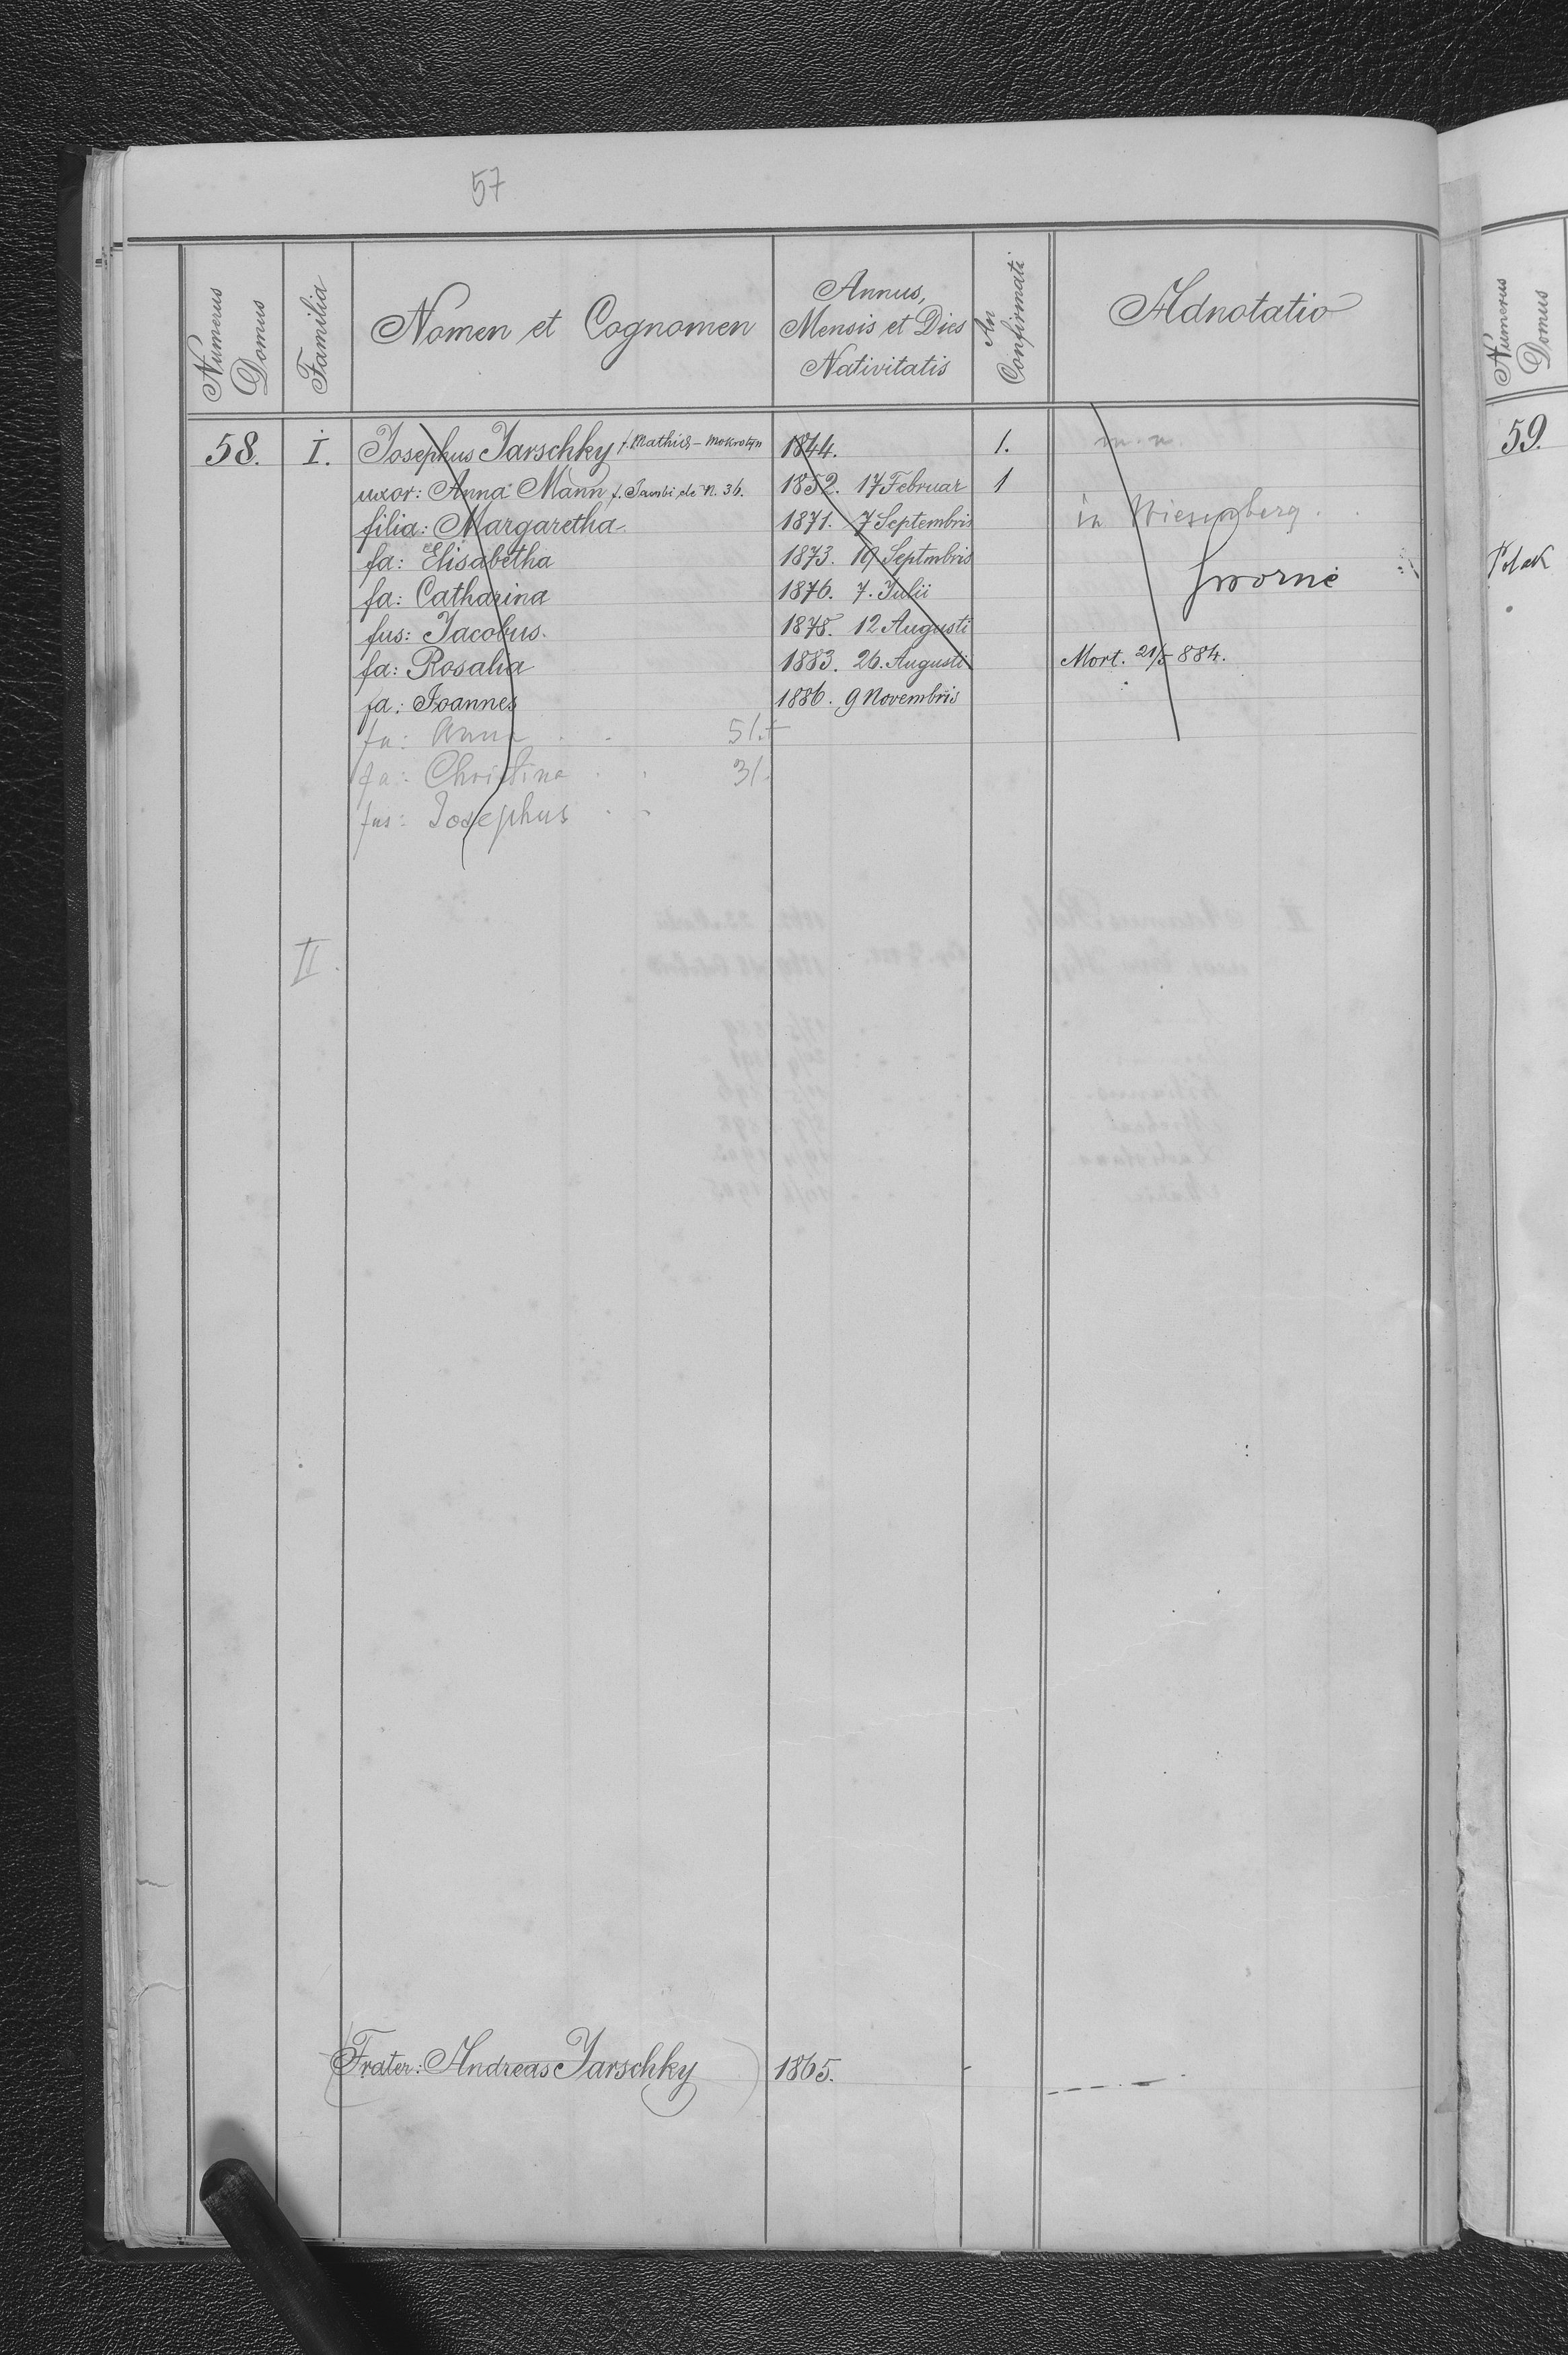 57
Numerus Domus
Familia
Nomen et Cognomen
Annus, Mensis et Dies Nativitatis
An Confirmati
Adnotatio
58. I. Josephus Jarschky f. Mathias – Mokrotyn 1844. 1.
uxor: Anna Mann f. Jacobi de N. 36. 1852. 17 Februar 1
filia: Margaretha 1871. 7 Septembris in Wiesenberg.
fa: Elisabetha 1873. 19 Septmbris
fa: Catharina 1876. 7. Julii
fus: Jacobus. 1878. 12 Augusti
fa: Rosalia 1883. 26. Augusti Mort. 21/5 884.
fa: Joannes 1886. 9 Novembris
fa: Anna 5/.+
fa: Christina 3/.
fus: Josephus
II.
Frater: Andreas Jarschky 1865.
Numerus Domus
59.